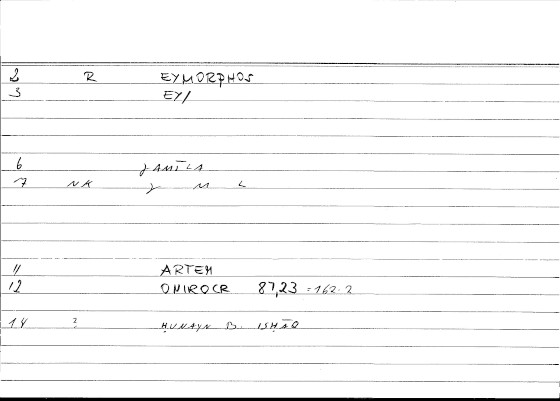 2 R EYMORPHOS
3 EY/
6 ǧAMĪLA
7 NK ǧ M L
11 ARTEM
12 ONIROCR 87,23 =162.2
14 ? ḤUNAYN B. ISḤĀQ